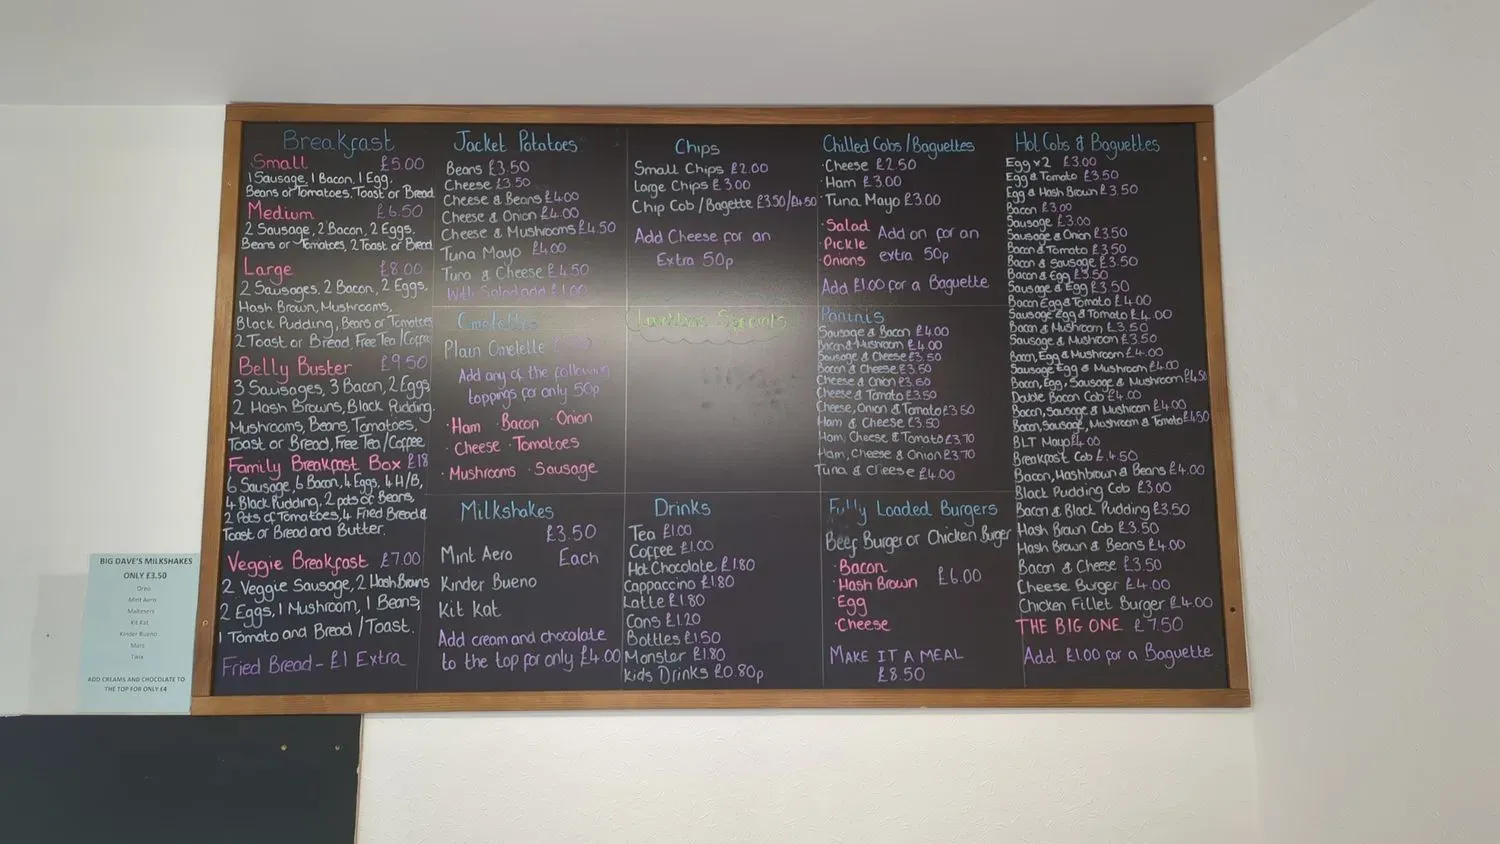 Breakfast
Small £5.00
1 Sausage, 1 Bacon, 1 Egg,
Beans or Tomatoes, Toast or Bread
Medium £6.50
2 Sausage, 2 Bacon, 2 Eggs.
Beans or Tomatoes, 2 Toast or Bread
Large £8.00
2 Sausages, 2 Bacon, 2 Eggs.
Hash Brown, Mushrooms,
Black Pudding, Beans or Tomatoes
2 Toast or Bread, Free Tea/Coffee
Belly Buster £9.50
3 Sausages, 3 Bacon, 2 Eggs
2 Hash Browns, Black Pudding.
Mushrooms, Beans, Tomatoes,
Toast or Bread, Free Tea/Coffee
Family Breakfast Box £18
6 Sausage, 6 Bacon, 4 Eggs, 4 H/B,
4 Black Pudding, 2 pots of Beans,
2 Pots of Tomatoes, 4 Fried Bread &
Toast or Bread and Butter.
Veggie Breakfast £7.00
2 Veggie Sausage, 2 Hash Browns
2 Eggs, 1 Mushroom, 1 Beans,
1 Tomato and Bread / Toast.
Fried Bread - £1 Extra
Jacket Potatoes
Beans £3.50
Cheese £3.50
Cheese & Beans £4.00
Cheese & Onion £4.00
Cheese & Mushrooms £4.50
Tuna Mayo £4.00
Tuna & Cheese £4.50
With Salad add £1.00
Omelettes
Plain Omelette
Add any of the following
toppings for only 50p
· Ham · Bacon · Onion
· Cheese · Tomatoes
· Mushrooms · Sausage
Milkshakes
£3.50
Each
Mint Aero
Kinder Bueno
Kit Kat
Add cream and chocolate
to the top for only £4.00
Chips
Small Chips £2.00
Large Chips £3.00
Chip Cob / Bagette £3.50/£4.50
Add Cheese for an
Extra 50p
Specials
Drinks
Tea £1.00
Coffee £1.00
Hot Chocolate £1.80
Cappaccino £1.80
Latte £1.80
Cans £1.20
Bottles £1.50
Monster £1.80
Kids Drinks £0.80p
Chilled Cobs / Baguettes
· Cheese £2.50
· Ham £3.00
· Tuna Mayo £3.00
· Salad
· Pickle
· Onions
Add on for an
extra 50p
Add £1.00 for a Baguette
Paninis
Sausage & Bacon £4.00
Bacon & Mushroom £4.00
Sausage & Cheese £3.50
Bacon & Cheese £3.50
Cheese & Onion £3.60
Cheese & Tomato £3.50
Cheese, Onion & Tomato £3.60
Ham & Cheese £3.50
Ham, Cheese & Tomato £3.70
Ham, Cheese & Onion £3.70
Tuna & Cheese £4.00
Fully Loaded Burgers
Beef Burger or Chicken Burger
· Bacon
· Hash Brown
· Egg
· Cheese
£6.00
MAKE IT A MEAL
£8.50
Hot Cobs & Baguettes
Egg x 2 £3.00
Egg & Tomato £3.50
Egg & Hash Brown £3.50
Bacon £3.00
Sausage £3.00
Sausage & Onion £3.50
Bacon & Tomato £3.50
Bacon & Sausage £3.50
Bacon & Egg £3.50
Sausage & Egg £3.50
Bacon Egg & Tomato £4.00
Sausage Egg & Tomato £4.00
Bacon & Mushroom £3.50
Sausage & Mushroom £3.50
Bacon, Egg & Mushroom £4.00
Sausage Egg & Mushroom £4.00
Bacon, Egg, Sausage & Mushroom £4.50
Double Bacon Cob £4.00
Bacon, Sausage & Mushroom £4.00
Bacon, Sausage, Mushroom & Tomato £4.50
BLT Mayo £4.00
Breakfast Cob £4.50
Bacon, Hashbrown & Beans £4.00
Black Pudding Cob £3.00
Bacon & Black Pudding £3.50
Hash Brown Cob £3.50
Hash Brown & Beans £4.00
Bacon & Cheese £3.50
Cheese Burger £4.00
Chicken Fillet Burger £4.00
THE BIG ONE £7.50
Add £1.00 for a Baguette
BIG DAVE'S MILKSHAKES
ONLY £3.50
Oreo
Mint Aero
Maltesers
Kit Kat
Kinder Bueno
Mars
Twix
ADD CREAMS AND CHOCOLATE TO
THE TOP FOR ONLY £4